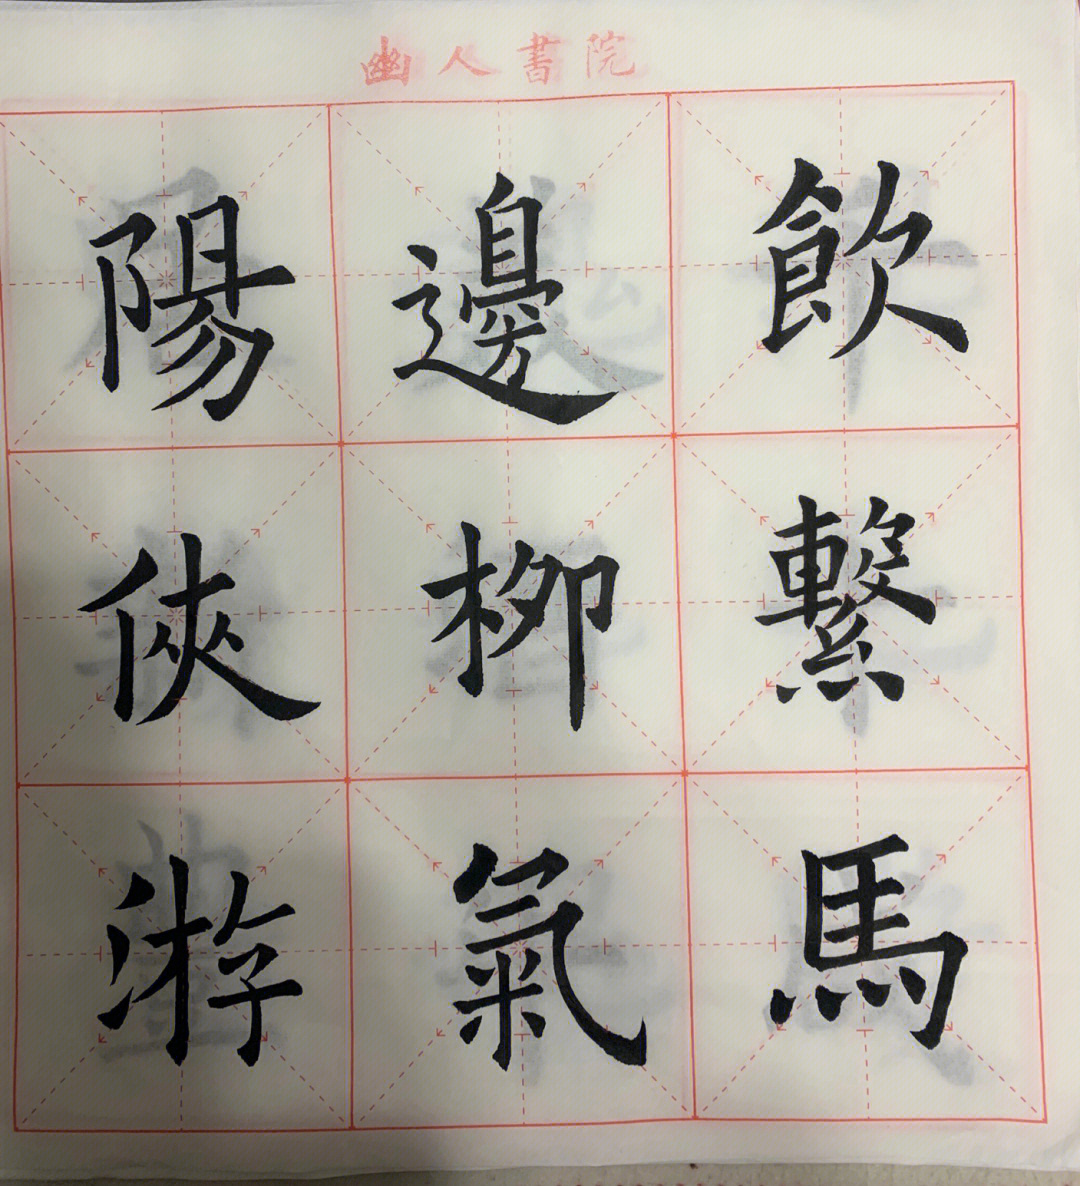 幽人書院
飲繫馬
邊柳氣
陽俠游